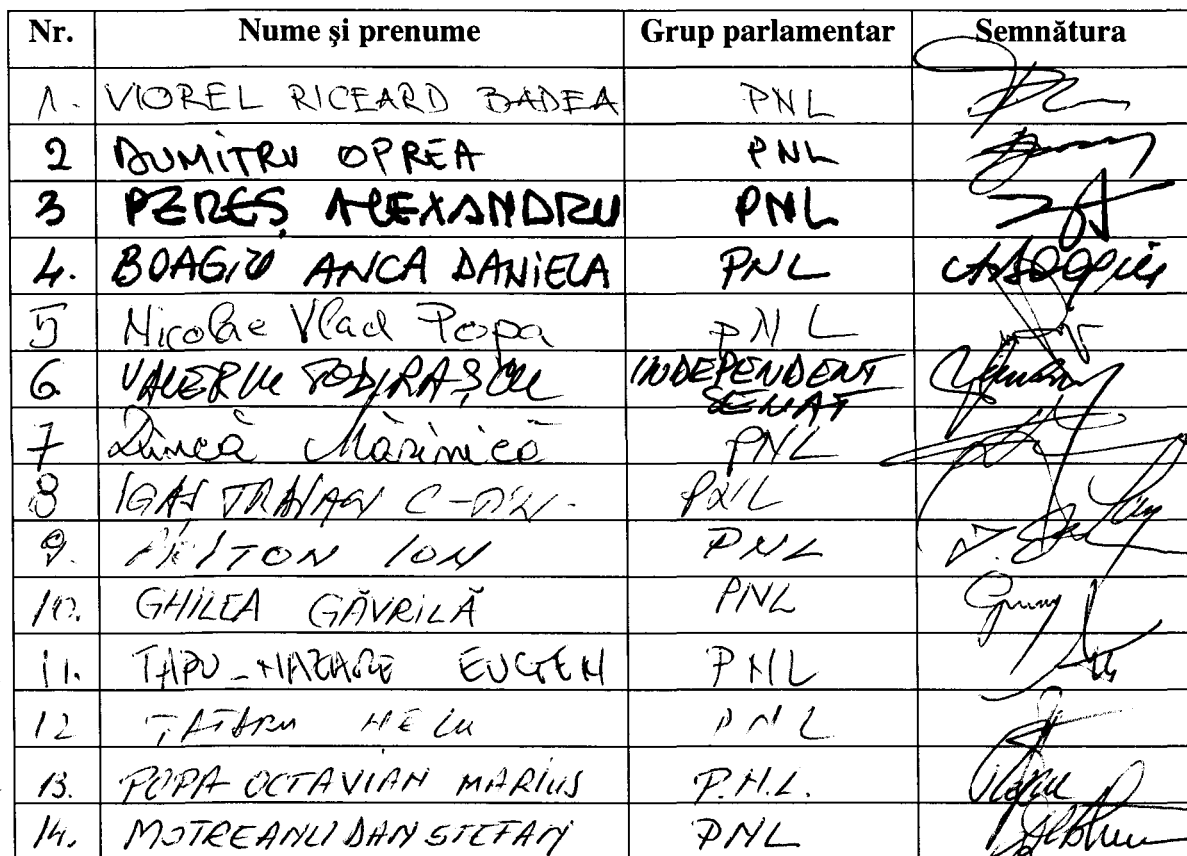 Nr. Nume şi prenume Grup parlamentar Semnătura
1. VIOREL RICEARD BADEA PNL
2 DUMITRU OPREA PNL
3 PEREŞ ALEXANDRU PNL
4. BOAGIU ANCA DANIELA PNL
5 Nicolae Vlad Popa PNL
6 VALERIU TODIRAŞCU INDEPENDENT
SENAT
7 Dincă Mărinică PNL
8 IGAŞ TRAIAN C-TIN. PNL
9. ARITON ION PNL
10. GHILEA GĂVRILĂ PNL
11. TAPU-NAZARE EUGEN PNL
12 ȚĂTARU NELU PNL
13. POPA OCTAVIAN MARIUS P.N.L.
14. MOTREANU DAN STEFAN PNL